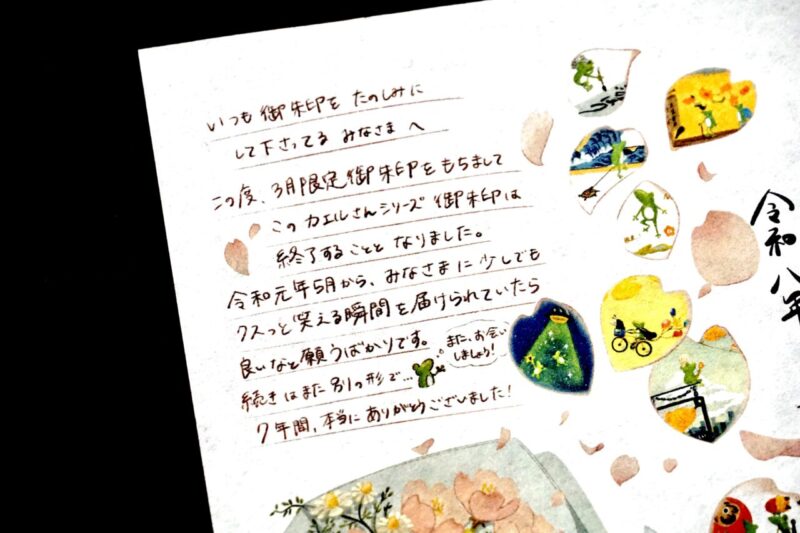 いつも御朱印を たのしみに
して下さってる みなさま へ
この度、3月限定御朱印をもちまして
この カエルさんシリーズ 御朱印は
終了することと なりました。
令和元年5月から、みなさまに少しでも
クスっと笑える瞬間を届けられていたら
良いなと願うばかりです。
また、お会い
しましょう!
続きはまた別の形で…
7年間、本当にありがとうございました!
令和八年